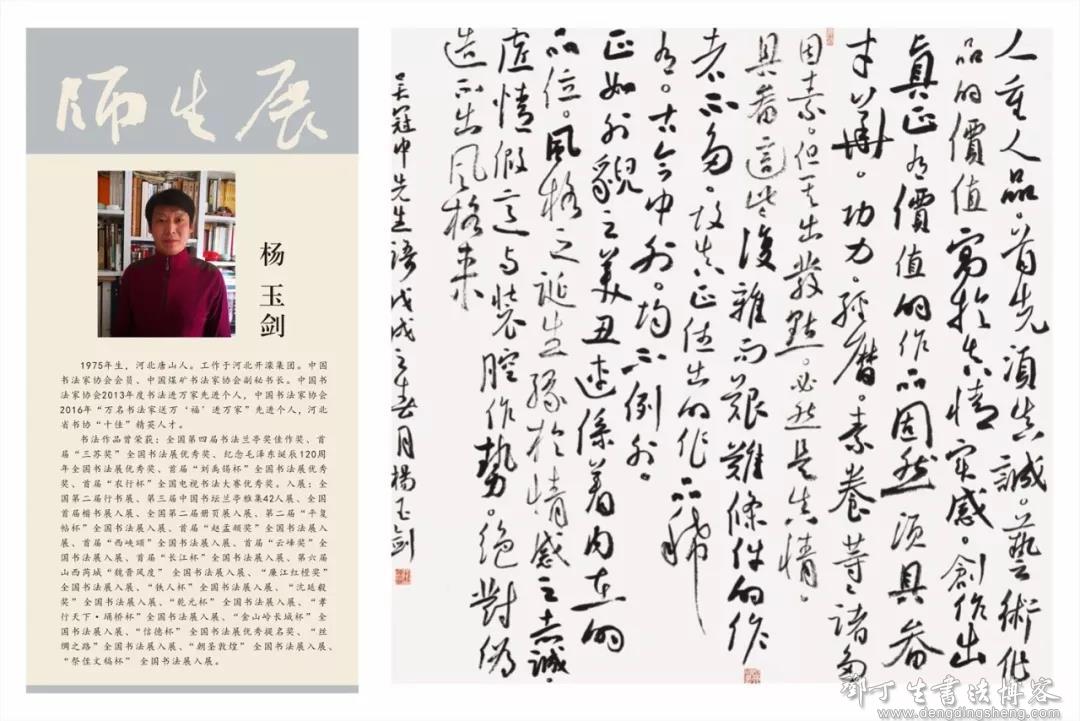 师生展
杨玉剑
1975年生，河北唐山人。工作于河北开滦集团。中国
书法家协会会员、中国煤矿书法家协会副秘书长。中国书
法家协会2013年度书法进万家先进个人，中国书法家协会
2016年“万名书法家送万‘福’进万家”先进个人，河北
省书协“十佳”精英人才。
书法作品曾荣获：全国第四届书法兰亭奖佳作奖、首
届“三苏奖”全国书法展优秀奖、纪念毛泽东诞辰120周
年全国书法展优秀奖、首届“刘禹锡杯”全国书法展优秀
奖、首届“农行杯”全国电视书法大赛优秀奖。入展：全
国第二届行书展、第三届中国书坛兰亭雅集42人展、全国
首届楷书展入展、全国第二届册页展入展、第二届“平复
帖杯”全国书法展入展、首届“赵孟頫奖”全国书法展入
展、首届“西峡颂”全国书法展入展、首届“云峰奖”全
国书法展入展、首届“长江杯”全国书法展入展、第六届
山西芮城“魏晋风度” 全国书法展入展、“廉江红橙奖”
全国书法展入展、“铁人杯” 全国书法展入展、“沈延毅
奖”全国书法展入展、“乾元杯”全国书法展入展、“孝
行天下·埇桥杯”全国书法展入展、“金山岭长城杯” 全
国书法展入展、“信德杯” 全国书法展优秀提名奖、“丝
绸之路”全国书法展入展、“朝圣敦煌” 全国书法展入展、
“祭侄文稿杯” 全国书法展入展。
人重人品。首先须真诚。艺术作
品的價值寓於真情实感。創作出
真正有價值的作品固然须具备
才華。功力。經曆。素養等等諸多
因素。但其出發點。必然是真情。
具备這些復雜而艱難條件的作
者不多。故真正佳出的作品稀
有。古今中外。均不例外。
正如外貌之美丑连係着内在的
品位。風格之诞生缘於情感之真誠。
虚情假意与装腔作勢。絶對偽
造不出風格来
吴冠中先生语戊戌之春月楊玉剑
邓丁生书法博客
www.dengdingsheng.com